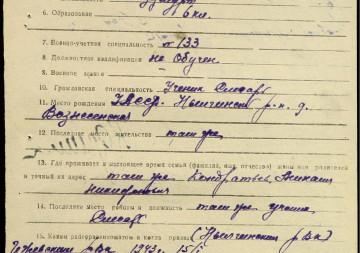 6. Образование 6 кл.
7. Военно-учетная специальность № 133
8. Должностная квалификация не обучен
9. Военное звание
10. Гражданская специальность Ученик Слесаря
11. Место рождения УАССР. Нылгинский р-н. д.
Вознесенское
12. Последнее место жительства там же
13. Где проживает в настоящее время семья (фамилия, имя, отчество) жены или родителей
и точный их адрес там же Кондратьев
14. Последнее место работы и должность там же ученик
Слесаря
15. Каким райвоенкоматом и когда призван (Нылгинским рвк)
рвк 1943 г. 15/I